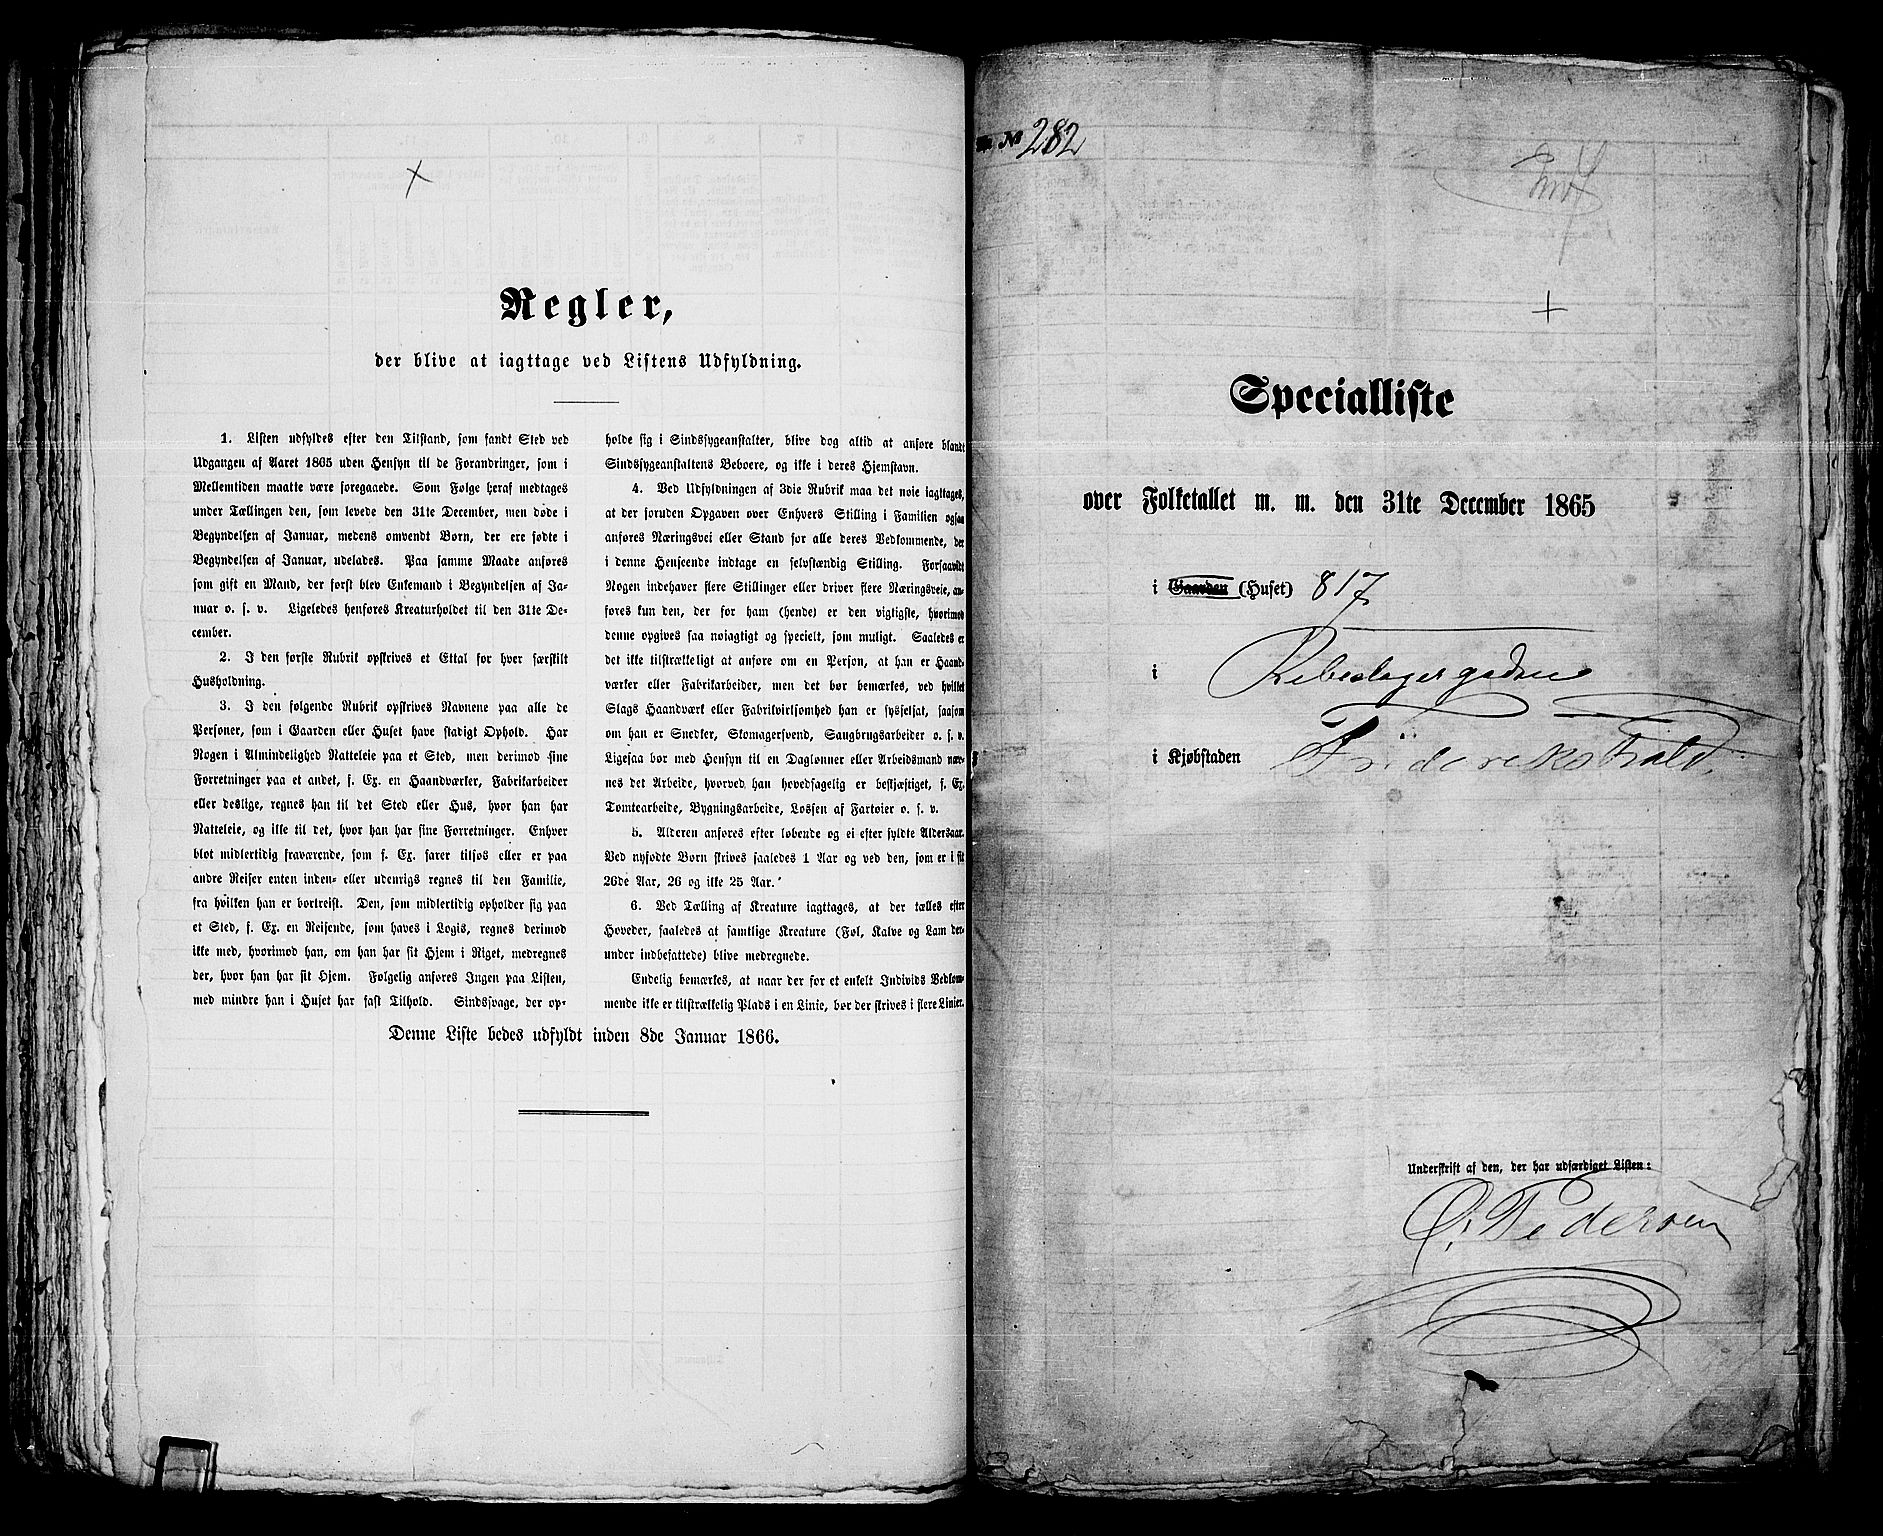 Regler,
der blive at iagttage ved Listens Udfyldning.
1. Listen udfyldes efter den Tilstand, som fandt Sted ved
Udgangen af Aaret 1865 uden Hensyn til de Forandringer, som i
Mellemtiden maatte være foregaaede. Som Følge heraf medtages
under Tællingen den, som levede den 31te December, men døde i
Begyndelsen af Januar, medens omvendt Børn, der ere fødte i
Begyndelsen af Januar, udelades. Paa samme Maade anføres
som gift en Mand, der først blev Enkemand i Begyndelsen af Ja-
nuar o. s. v. Ligeledes henføres Kreaturholdet til den 31te De-
cember.
2. I den første Rubrik opskrives et Ettal for hver særskilt
Husholdning.
3. I den følgende Rubrik opskrives Navnene paa alle de
Personer, som i Gaarden eller Huset have stadigt Ophold. Har
Nogen i Almindelighed Natteleie paa et Sted, men derimod sine
Forretninger paa et andet, f. Ex. en Haandværker, Fabrikarbeider
eller deslige, regnes han til det Sted eller Hus, hvor han har
Natteleie, og ikke til det, hvor han har sine Forretninger. Enhver
blot midlertidig fraværende, som f. Ex. farer tilsøs eller er paa
andre Reiser enten inden- eller udenrigs regnes til den Familie,
fra hvilken han er bortreist. Den, som midlertidig opholder sig paa
et Sted, f. Ex. en Reisende, som haves i Logis, regnes derimod
ikke med, hvorimod han, om han har sit Hjem i Riget, medregnes
der, hvor han har sit Hjem. Følgelig anføres Ingen paa Listen,
med mindre han i Huset har fast Tilhold. Sindssvage, der op-
holde sig i Sindssygeanstalter, blive dog altid at anføre blandt
Sindssygeanstaltens Beboere, og ikke i deres Hjemstavn.
4. Ved Udfyldningen af 3die Rubrik maa det nøie iagttages,
at der foruden Opgaven over Enhvers Stilling i Familien ogsaa
anføres Næringsvei eller Stand for alle deres Vedkommende, der
i denne Henseende indtage en selvstændig Stilling. Forsaavidt
Nogen indehaver flere Stillinger eller driver flere Næringsveie, an-
føres kun den, der for ham (hende) er den vigtigste, hvorimod
denne opgives saa nøiagtigt og specielt, som muligt. Saaledes er
det ikke tilstrækkeligt at anføre om en Person, at han er Haand-
værker eller Fabrikarbeider, men det bør bemærkes, ved hvilket
Slags Haandværk eller Fabrikvirksomhed han er sysselsat, saasom
om han er Snedker, Skomagersvend, Saugbrugsarbeider o. s. v.
Ligesaa bør med Hensyn til en Dagløner eller Arbeidsmand næv-
nes det Arbeide, hvorved han hovedsagelig er beskjæftiget, f. Ex.
Tomtearbeide, Bygningsarbeide, Lossen af Fartøier o. s. v.
5. Alderen anføres efter løbende og ei efter fyldte Aldersaar.
Ved nyfødte Børn skrives saaledes 1 Aar og ved den, som er i sit
26de Aar, 26 og ikke 25 Aar.
6. Ved Tælling af Kreature iagttages, at der tælles efter
Hoveder, saaledes at samtlige Kreature (Føl, Kalve og Lam der-
under indbefattede) blive medregnede.
Endelig bemærkes, at naar der for et enkelt Individs Vedkom-
mende ikke er tilstrækkelig Plads i en Linie, bør der skrives i flere Linier.
Denne Liste bedes udfyldt inden 8de Januar 1866.
№ 282
Specialliste
over Folketallet m. m. den 31te December 1865
i Gaarden (Huset) 817
i Rebeslagergaden
i Kjøbstaden Friderikshald
Underskrift af den, der har udfærdiget Listen:
O. Pedersen